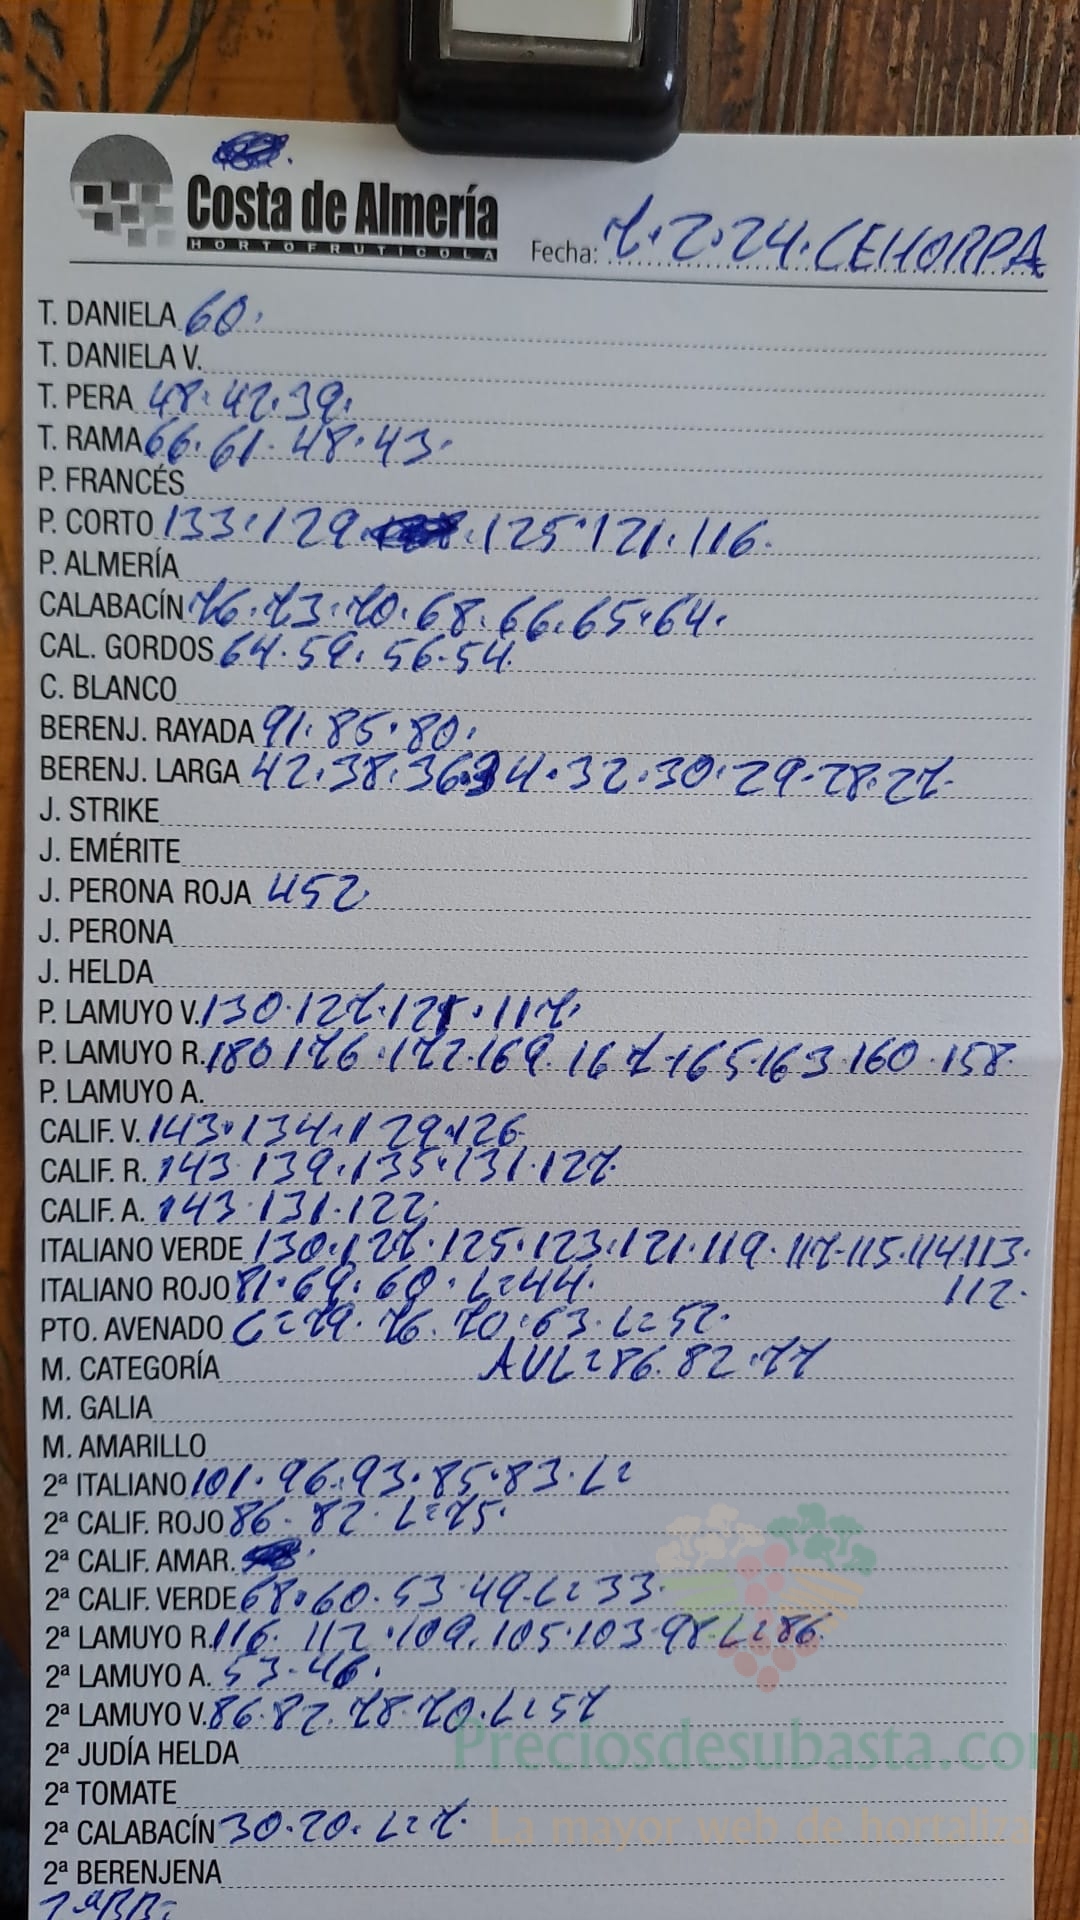 Costa de Almería
HORTOFRUTICOLA
Fecha: 7.2.24. CEHORPA
T. DANIELA 60.
T. DANIELA V.
T. PERA 48. 42. 39.
T. RAMA 66. 61. 48. 43.
P. FRANCÉS
P. CORTO 133. 129. 125. 121. 116.
P. ALMERÍA
CALABACÍN 76. 73. 70. 68. 66. 65. 64.
CAL. GORDOS 64. 59. 56. 54.
C. BLANCO
BERENJ. RAYADA 91. 85. 80.
BERENJ. LARGA 42. 38. 36. 34. 32. 30. 29. 28. 27.
J. STRIKE
J. EMÉRITE
J. PERONA ROJA 452
J. PERONA
J. HELDA
P. LAMUYO V. 130. 127. 121. 117.
P. LAMUYO R. 180 176. 172. 169. 167. 165. 163. 160. 158.
P. LAMUYO A.
CALIF. V. 143. 134. 129. 126
CALIF. R. 143. 139. 135. 131. 127.
CALIF. A. 143. 131. 122.
ITALIANO VERDE 130. 127. 125. 123. 121. 119. 117. 115. 114 113.
112.
ITALIANO ROJO 81. 69. 60. L=44.
PTO. AVENADO C=79. 76. 70. 63. L=52.
M. CATEGORÍA AVL=86. 82. 77
M. GALIA
M. AMARILLO
2ª ITALIANO 101. 96. 93. 85. 83. L=
2ª CALIF. ROJO 86. 82. L=75.
2ª CALIF. AMAR.
2ª CALIF. VERDE 68. 60. 53. 49. L=33.
2ª LAMUYO R. 116. 112. 109. 105. 103 98 L=86.
2ª LAMUYO A. 53. 46.
2ª LAMUYO V. 86. 82. 78. 70. L=57
Preciosdesubasta.com
2ª JUDÍA HELDA
2ª TOMATE
2ª CALABACÍN 30. 20. L=7.
La mayor web de hortalizas
2ª BERENJENA